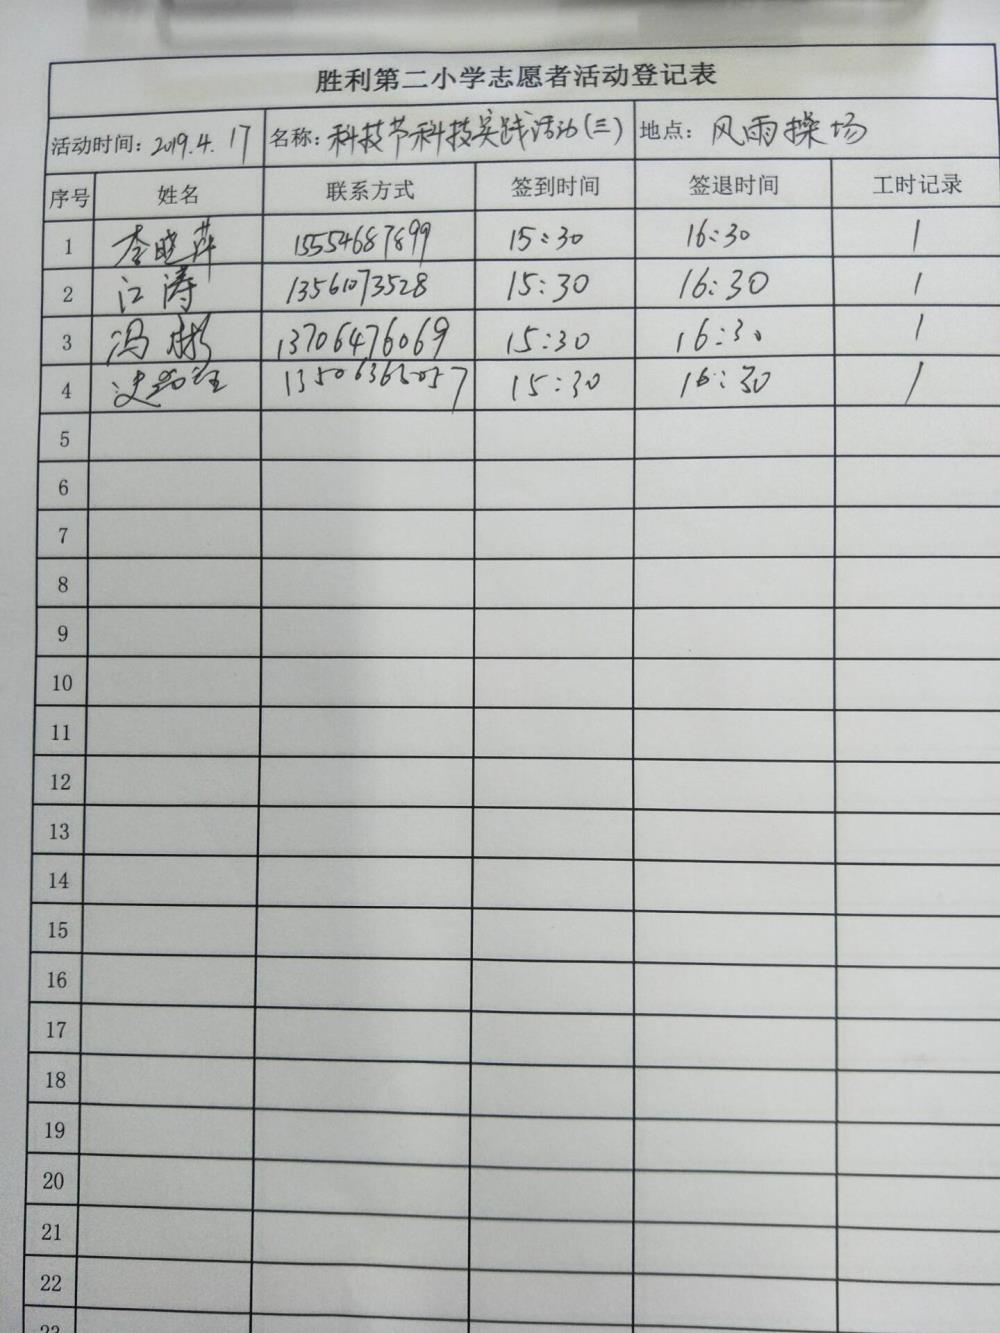 胜利第二小学志愿者活动登记表
活动时间：2019.4.17 名称：科技节科技实践活动(三) 地点：风雨操场
序号 姓名 联系方式 签到时间 签退时间 工时记录
1 李晓萍 15554687899 15:30 16:30 1
2 江涛 13561073528 15:30 16:30 1
3 冯彬 13706476069 15:30 16:30 1
4 15:30 16:30 1
5
6
7
8
9
10
11
12
13
14
15
16
17
18
19
20
21
22
23